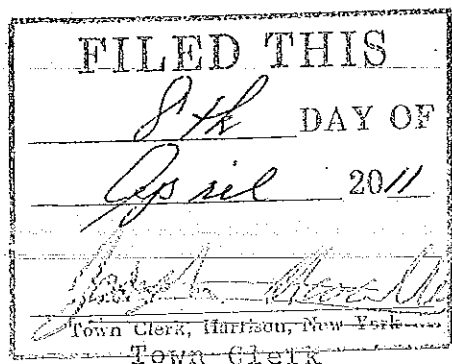 FILED THIS
8th DAY OF
April 2011
Town Clerk, Harrison, New York
Town Clerk